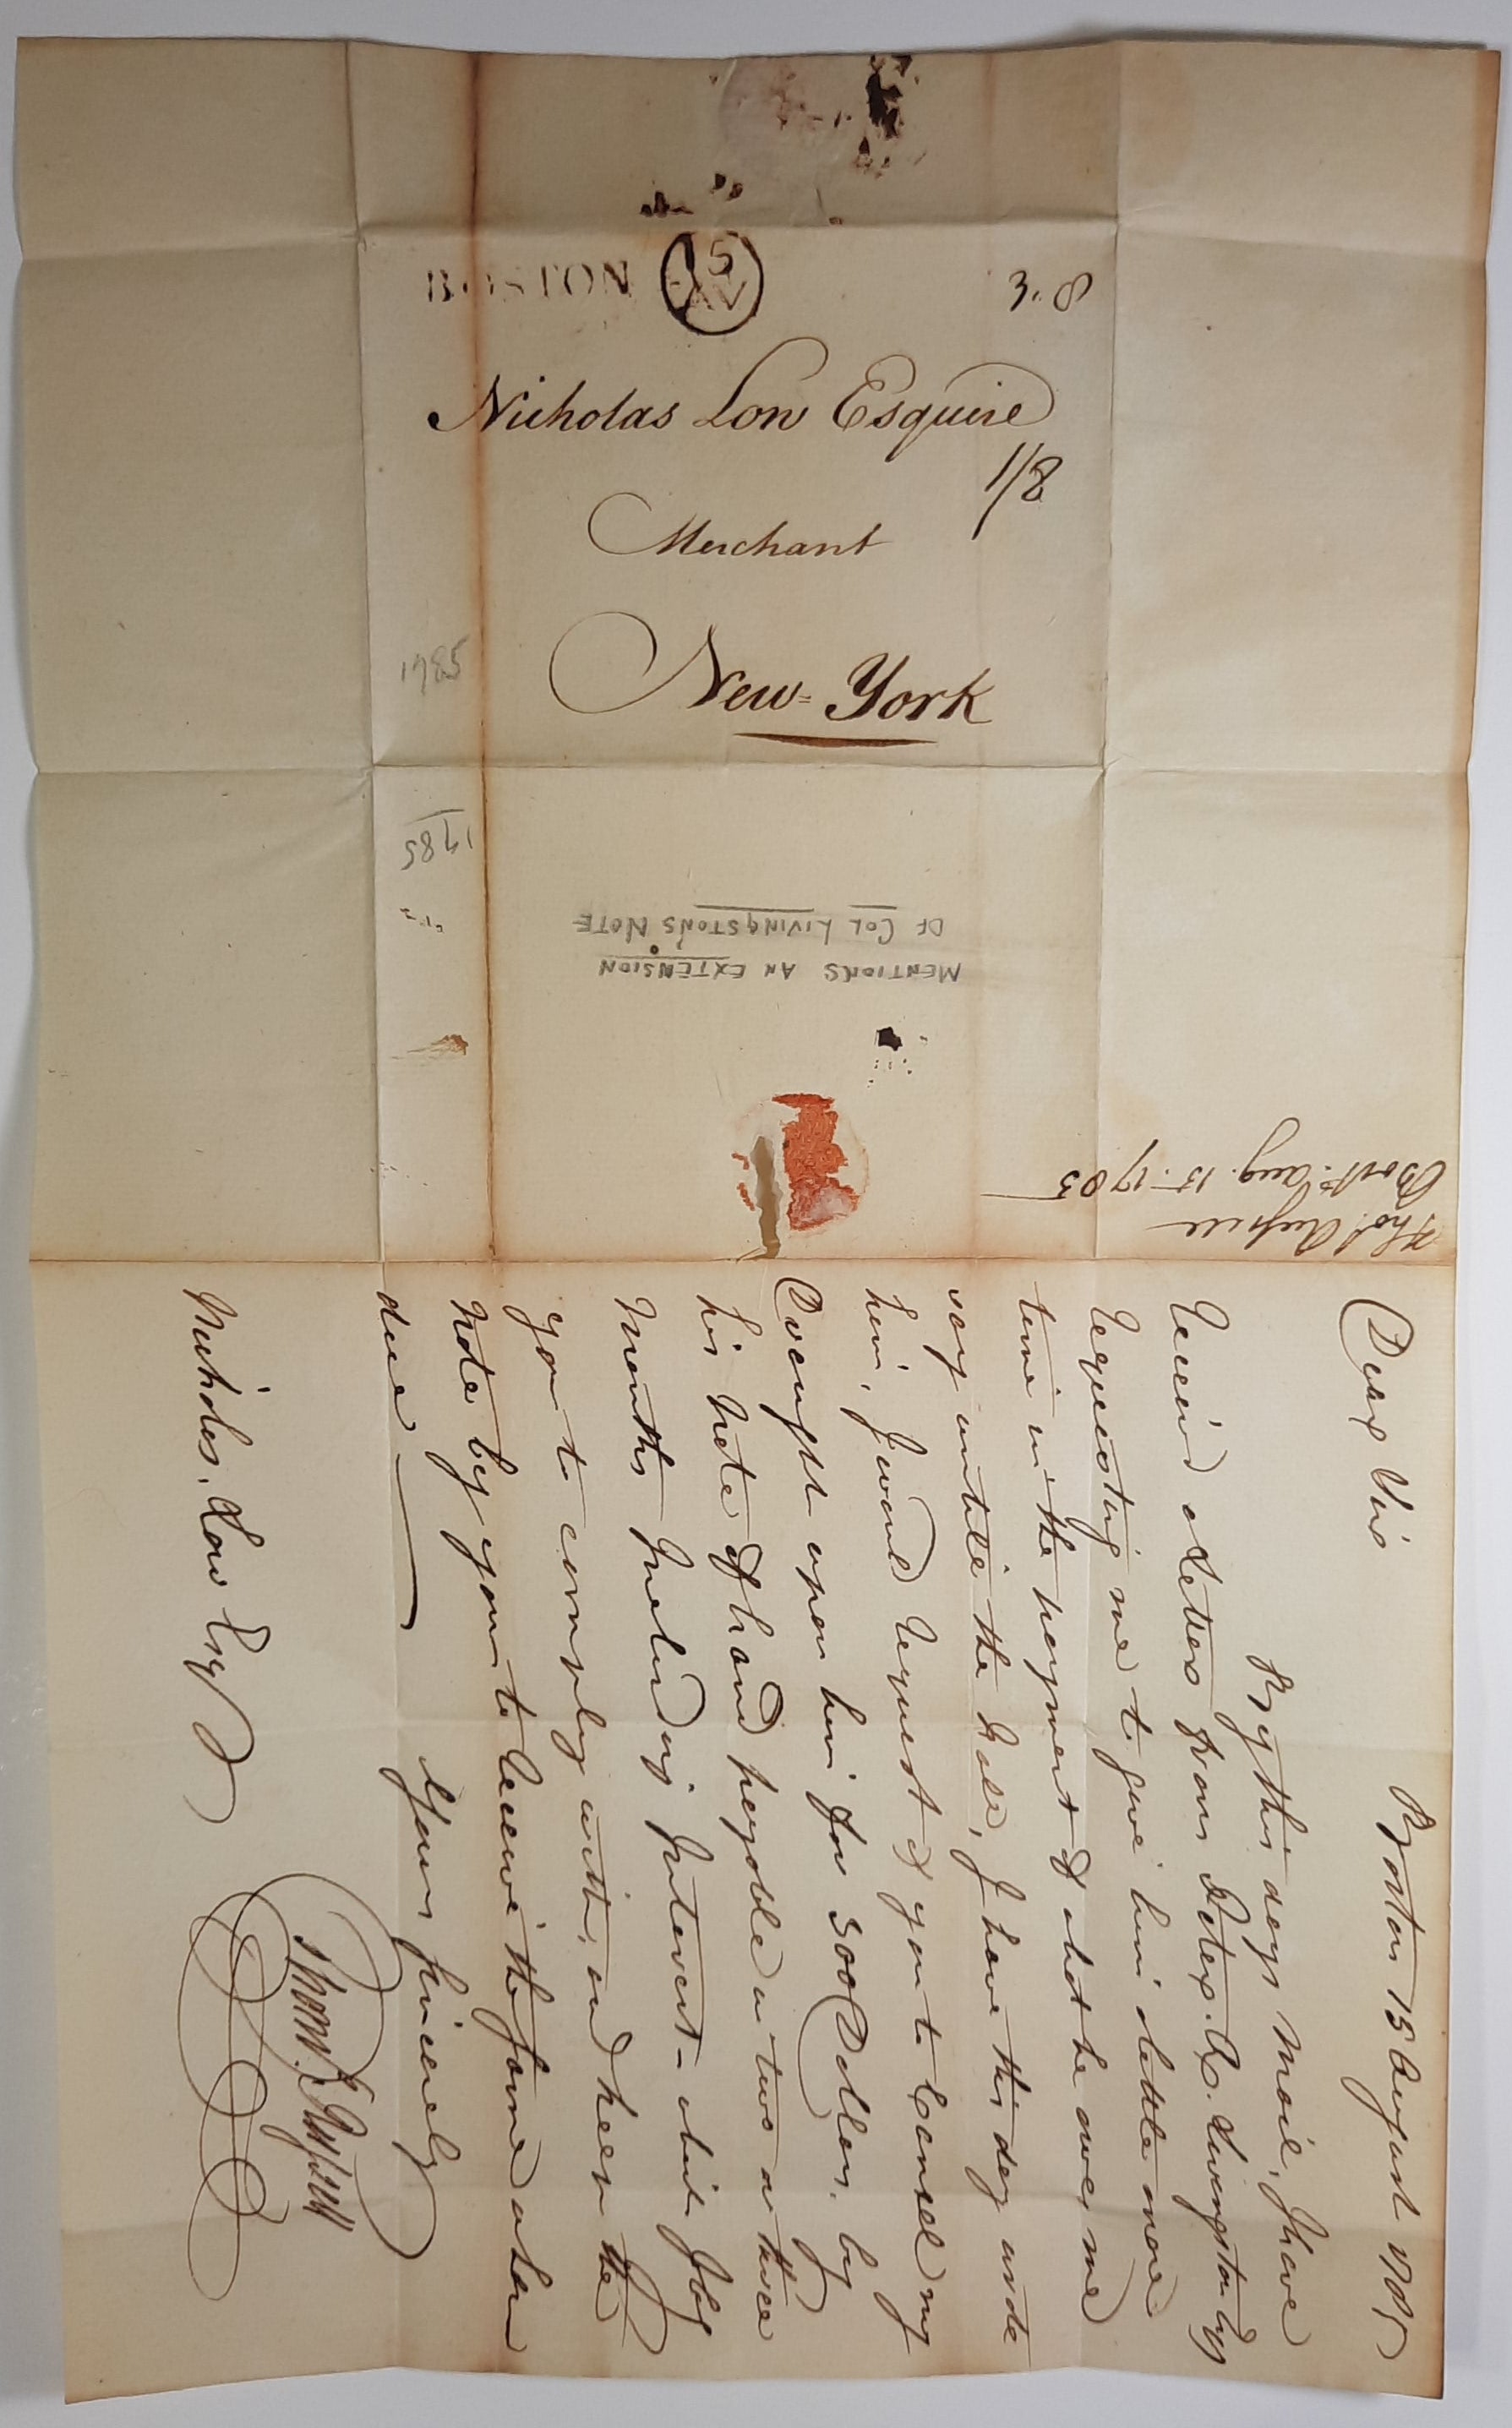 BOSTON 15 AV
3.8
Nicholas Low Esquire
1/8
Merchant
New=York
1785
1785
MENTIONS AN EXTENSION
OF COL LIVINGSTON'S NOTE
Thos. Russell
Bost: Aug. 15. 1785
Boston 15 August 1785
Dear Sir
By this days Mail, I have
Receiv'd a Letter from Peter R. Livingston Esqr
Requesting me to give him a little more
time in the payment of what he owes me
say untill the Fall, I have this day wrote
him, I would Request of you to Cancel my
Draught upon him for 500 Dollars. by
his Note of hand payable in two or three
Months Including Interest - which I beg
you to comply with, and keep the
Note by you to receive the same when
due —
Yours sincerely
Thomas Russell
Nicholas. Low Esqr